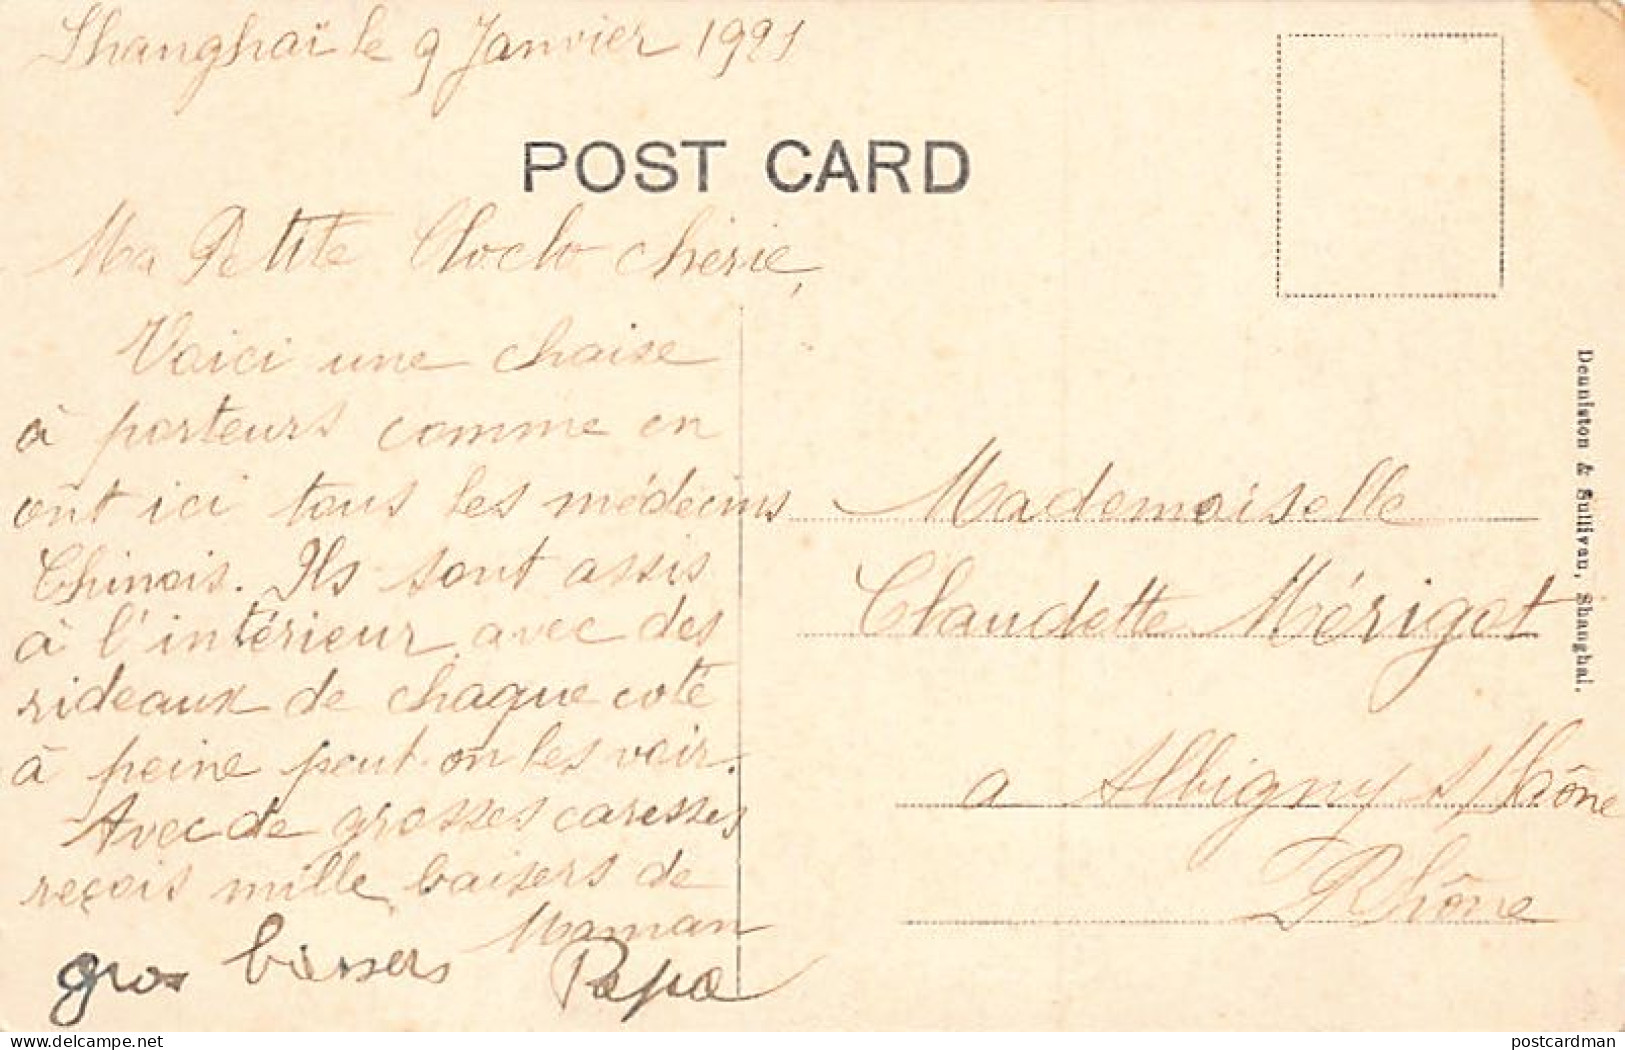 Shanghaï le 9 Janvier 1921
POST CARD
Ma Petite Cloclo chérie,
Voici une chaise
à porteurs comme en
ont ici tous les médecins
Chinois. Ils sont assis
à l'intérieur avec des
rideaux de chaque coté
à peine peut-on les voir.
Avec de grosses caresses
reçois mille baisers de
Maman
gros baisers Papa
Mademoiselle
Claudette Mérigot
a Albigny s/Saône
Rhône
Denniston & Sullivan, Shanghai.
delcampe.net
postcardman